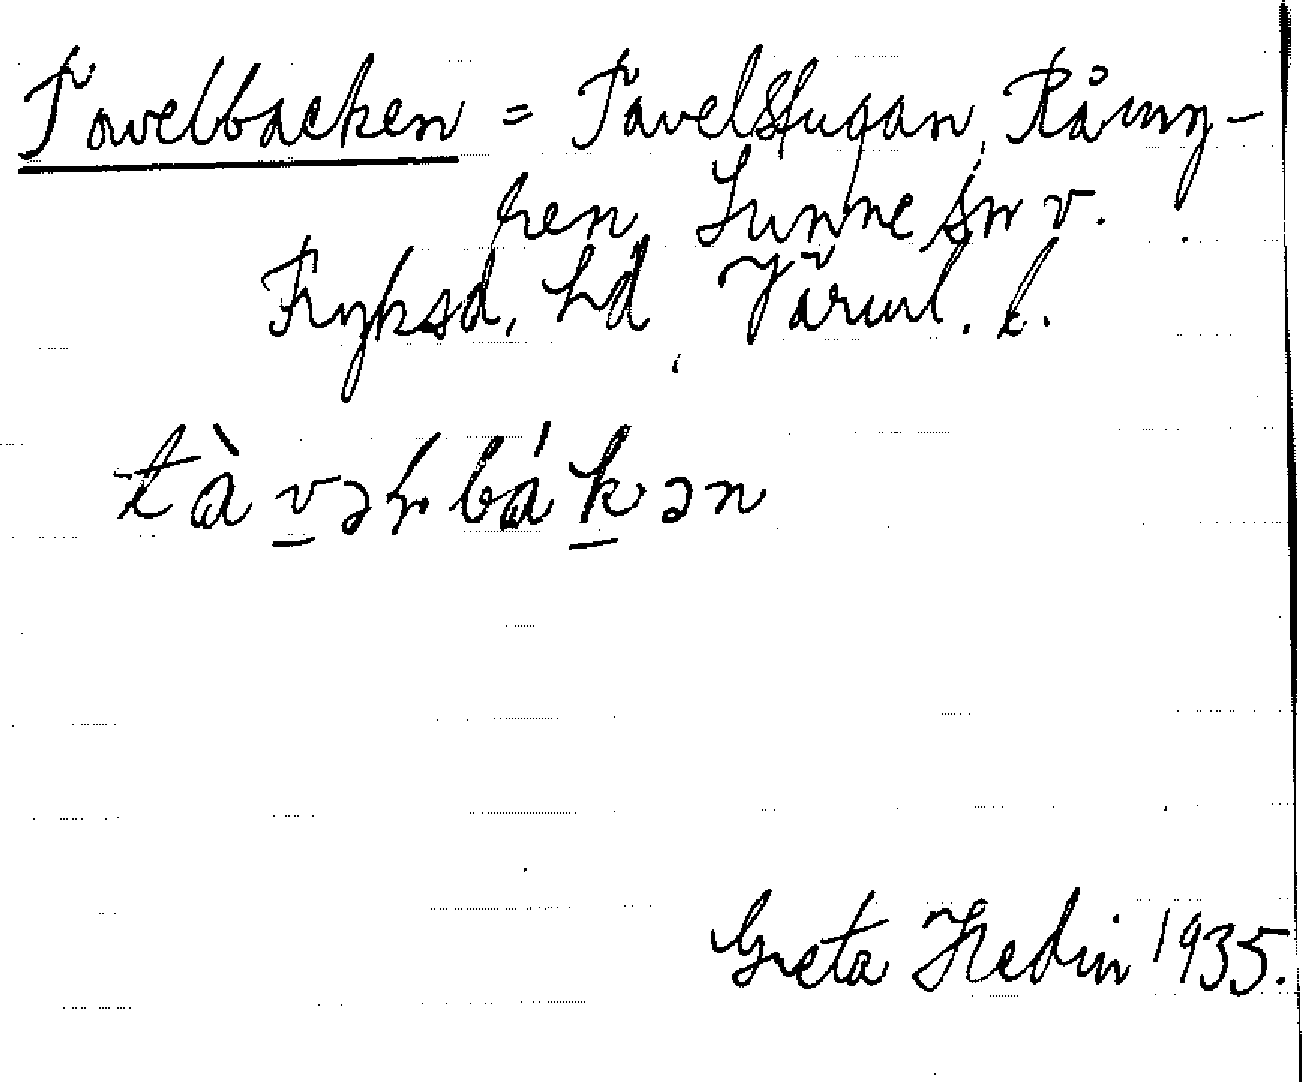 Tavelbacken = Tavelstugan, Råmy-
ren, Sunne sn v.
Fryksd. hd, Värml. l.
tàvəɽbákən
Greta Hedin 1935.